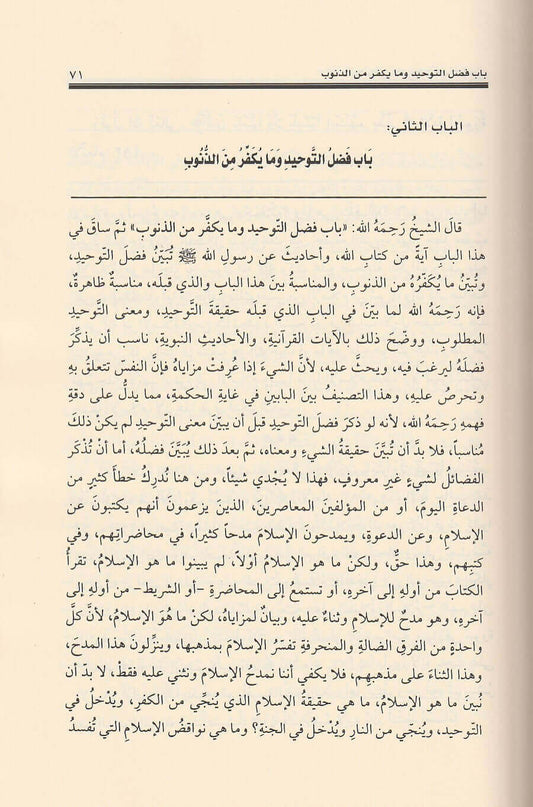 باب فضل التوحيد وما يكفر من الذنوب ٧١
الباب الثاني:
بَاب فَضْلُ التَّوحيدِ وَمَا يُكَفِّرُ مِنَ الذُّنُوبِ
قالَ الشيخُ رَحِمَهُ الله: «باب فضل التّوحيد وما يكفَّر من الذنوبِ» ثمَّ ساقَ في
هذا البابِ آيةً من كتابِ الله، وأحاديثَ عن رسولِ الله ﷺ تُبَيِّنُ فضلَ التّوحيدِ،
وتُبيِّنُ ما يُكَفِّرُهُ من الذنوبِ، والمناسبةُ بينَ هذا البابِ والذي قبلَه، مناسبةٌ ظاهرةٌ،
فإنه رَحِمَهُ الله لما بيّنَ في البابِ الذي قبلَه حقيقةَ التَّوحيدِ، ومعنى التَّوحيدِ
المطلوبِ، ووضّحَ ذلك بالآياتِ القرآنيةِ، والأحاديثِ النبويةِ، ناسب أن يذكِّرَ
فضلَهُ ليرغبَ فيه، ويحثَّ عليه، لأنَّ الشيءَ إذا عُرِفتْ مزاياهُ فإنَّ النفسَ تتعلقُ بهِ
وتحرصُ عليهِ، وهذا التصنيفُ بينَ البابينِ في غايةِ الحكمةِ، مما يدلُّ على دقةِ
فهمِهِ رَحِمَهُ الله، لأنه لو ذكرَ فضلَ التّوحيدِ قبلَ أن يبيّنَ معنى التّوحيدِ لم يكن ذلكَ
مُناسباً، فلا بدَّ أن تُبيَّنَ حقيقةُ الشيءِ ومعناه، ثمَّ بعدَ ذلك يُبَيَّنَ فضلُهُ، أما أنْ تُذْكَر
الفضائلُ لشيءٍ غيرِ معروفٍ، فهذا لا يُجْدي شيئاً، ومن هنا نُدركُ خطأَ كثيرٍ من
الدعاةِ اليومَ، أو من المؤلفينَ المعاصرينَ، الذينَ يزعمونَ أنهم يكتبونَ عن
الإسلامِ، وعن الدعوةِ، ويمدحونَ الإسلامَ مدحاً كثيراً، في محاضراتِهم، وفي
كتبِهم، وهذا حقٌّ، ولكنْ ما هو الإسلامُ أوّلاً، لم يبينوا ما هو الإسلامُ، تقرأُ
الكتابَ من أولِهِ إلى آخرِهِ، أو تستمعُ إلى المحاضرةِ -أو الشريط- من أولهِ إلى
آخرِهِ، وهو مدحٌ للإسلامِ وثناءٌ عليه، وبيانٌ لمزاياهُ، لكنْ ما هُوَ الإسلامُ، لأنَّ كلَّ
واحدةٍ من الفرقِ الضالةِ والمنحرفةِ تفسّرُ الإسلامَ بمذهبها، وينزِّلونَ هذا المدحَ،
وهذا الثناءَ على مذهبِهم، فلا يكفي أننا نمدحُ الإسلامَ ونثني عليه فقطْ، لا بدّ أن
نُبينَ ما هو الإسلامُ، ما هي حقيقةُ الإسلامِ الذي يُنجِّي من الكفرِ، ويُدْخلُ في
التّوحيد، ويُنجّي من النارِ ويُدْخلُ في الجنةِ؟ وما هي نواقضُ الإسلامِ التي تُفسدُ